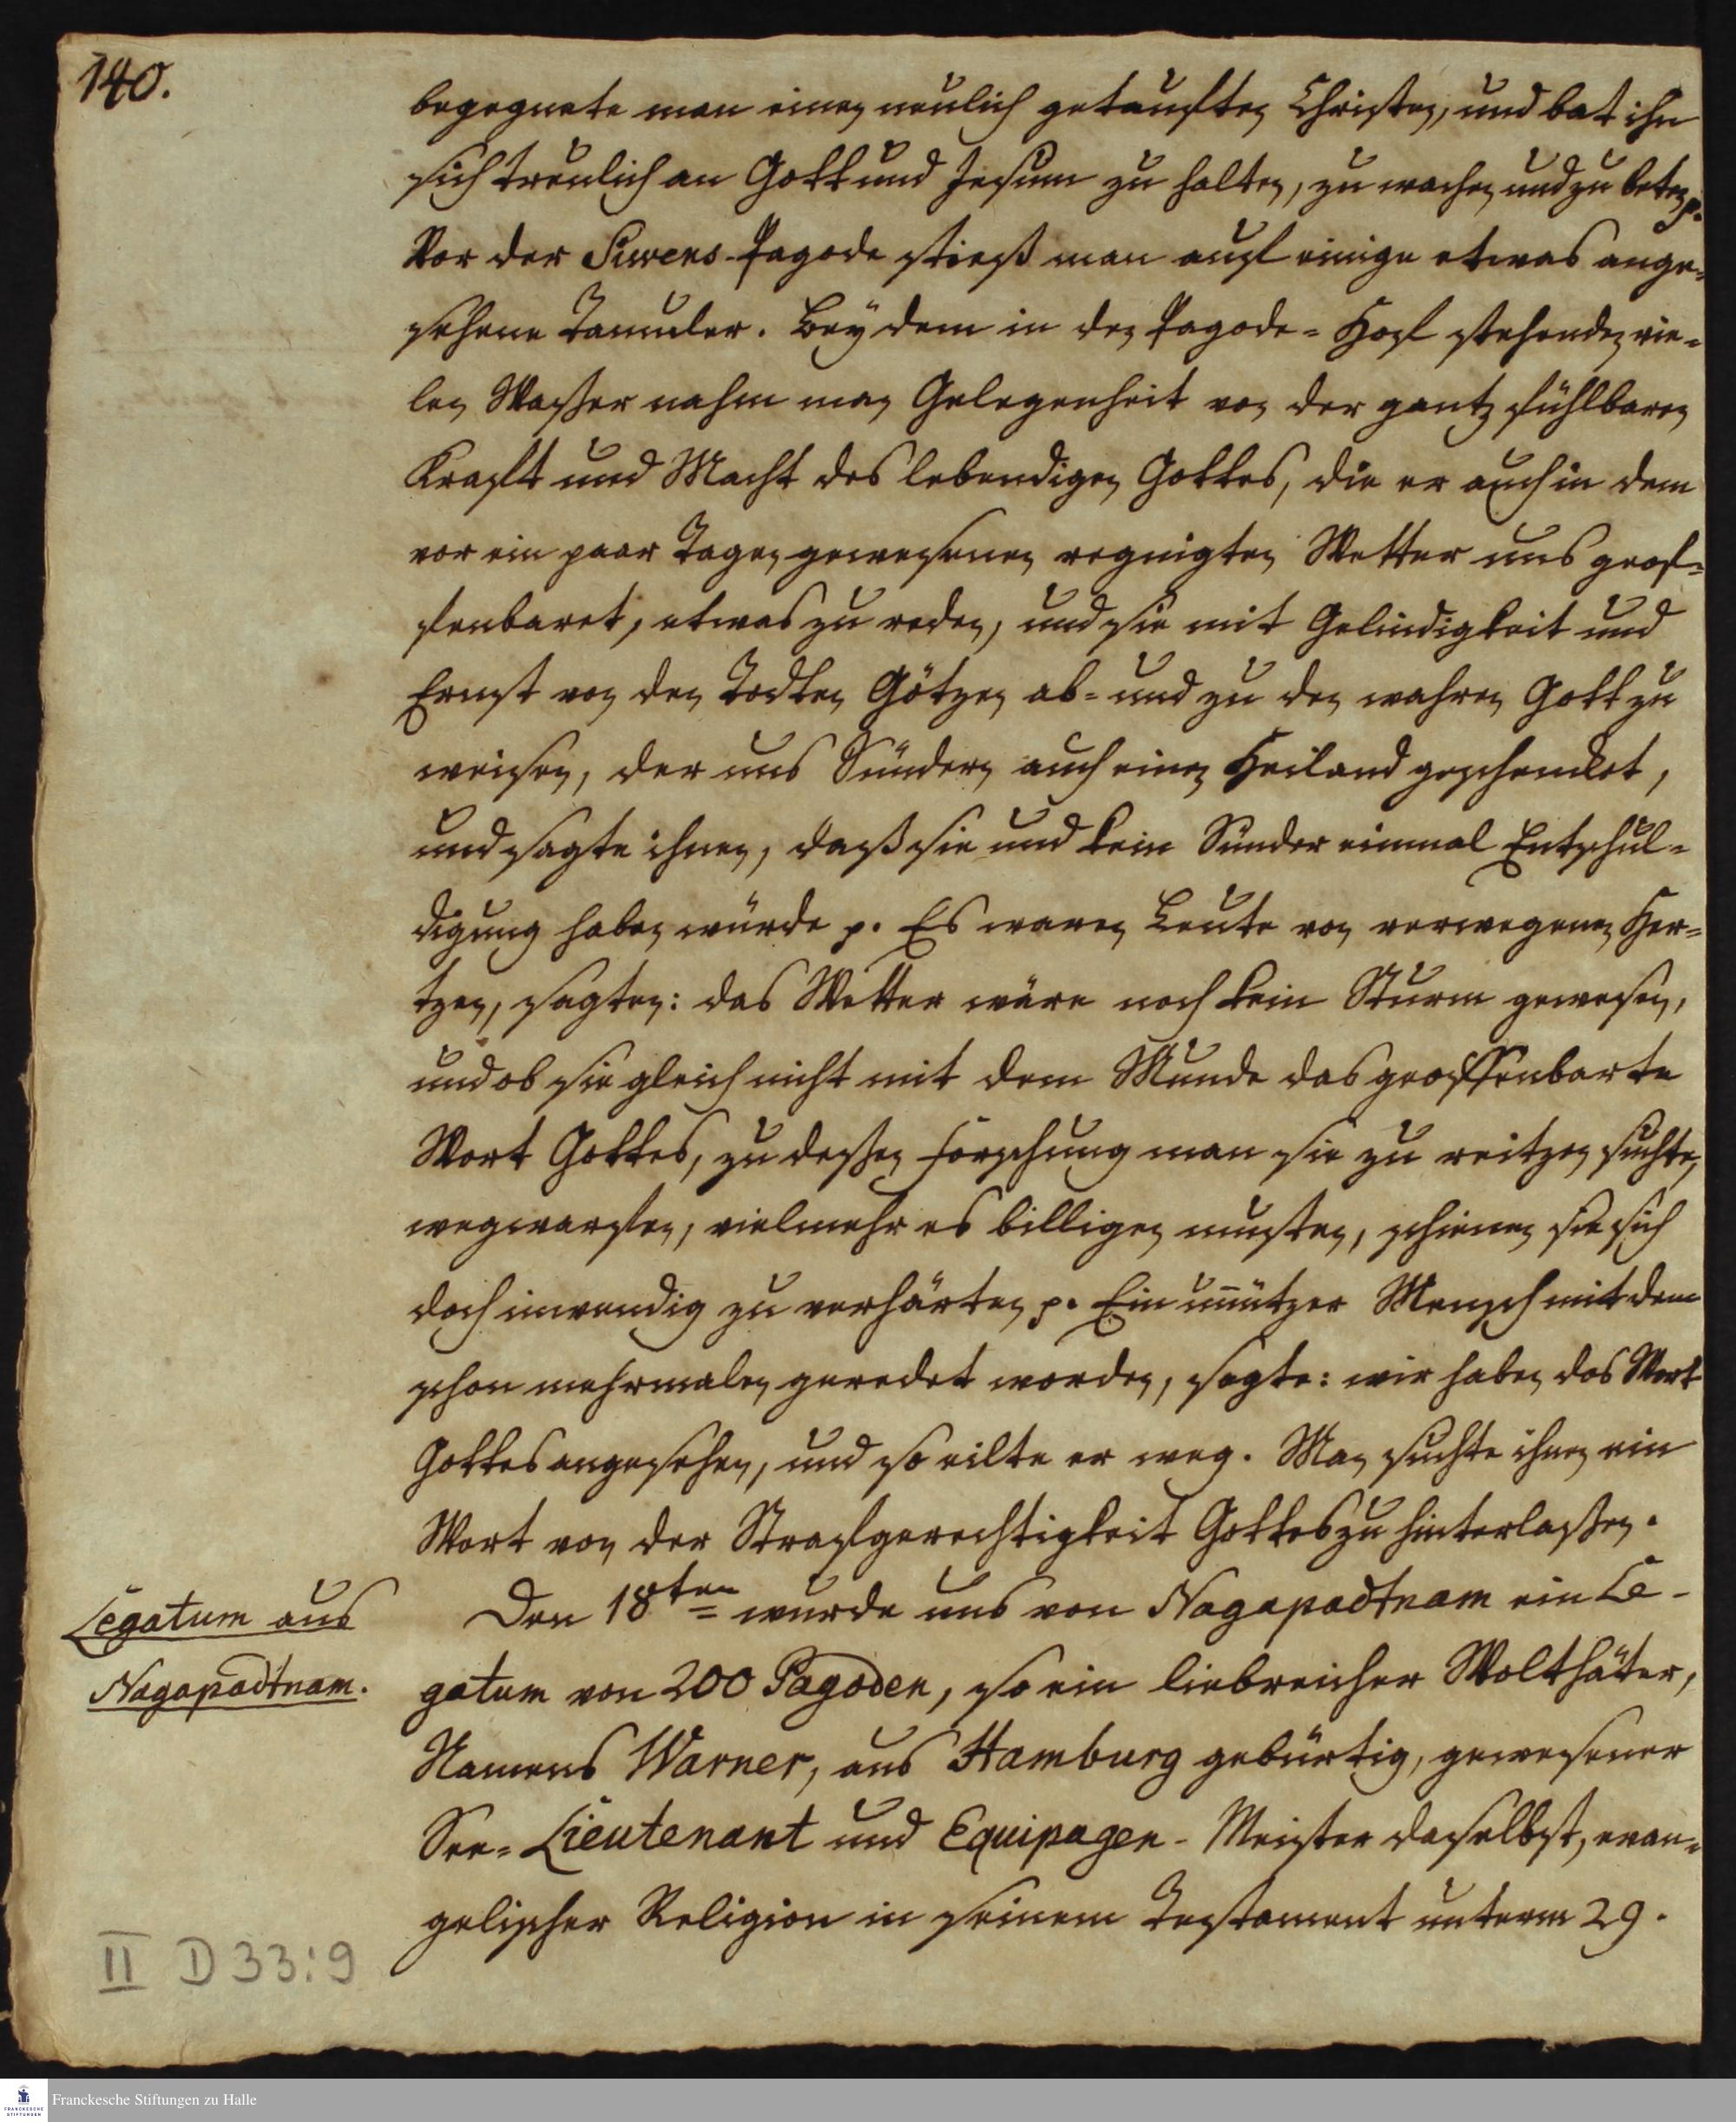 140.
begegnete man einen neulich getauften Christen, und bat ihn
sich treulich an Gott und Jesum zu halten, zu wachen und zu beten p.
Vor der Siwens-Pagode stieß man auf einige etwas ange-
sehene Tamuler. Bey dem in den Pagode-Hof stehenden vie-
len Waßer nahm man Gelegenheit von der gantz fühlbaren
Kraft und Macht des lebendigen Gottes, die er auch in dem
vor ein paar Tagen gewesenen regnigten Wetter uns geof-
fenbaret, etwas zu reden, und sie mit Gelindigkeit und
Ernst von den Todten Götzen ab- und zu den wahren Gott zu
weisen, der uns Sündern auch einen Heiland geschencket,
und sagte ihnen, daß sie und kein Sünder einmal Entschul-
digung haben würde p. Es waren Leute von verwegenen Her-
tzen, sagten: das Wetter wäre noch kein Sturm gewesen,
und ob sie gleich nicht mit dem Munde das geoffenbarte
Wort Gottes, zu deßen Forschung man sie zu reitzen suchte,
wegwarfen, vielmehr es billigen musten, schienen sie sich
doch inwendig zu verhärten p. Ein unnützer Mensch mit dem
schon mehrmalen geredet worden, sagte: wir haben das Wort
Gottes angesehen, und so eilte er weg. Man suchte ihnen ein
Wort von der Strafgerechtigkeit Gottes zu hinterlaßen.
Legatum aus
Nagapadtnam.
Den 18ten wurde uns von Nagapadtnam ein Le-
gatum von 200 Pagoden, so ein liebreicher Wolthäter,
Namens Warner, aus Hamburg gebürtig, gewesener
See-Lieutenant und Equipagen-Meister daselbst, evan-
gelischer Religion in seinem Testament unterm 29.
II D 33:9
Franckesche Stiftungen zu Halle
FRANCKESCHE
STIFTUNGEN